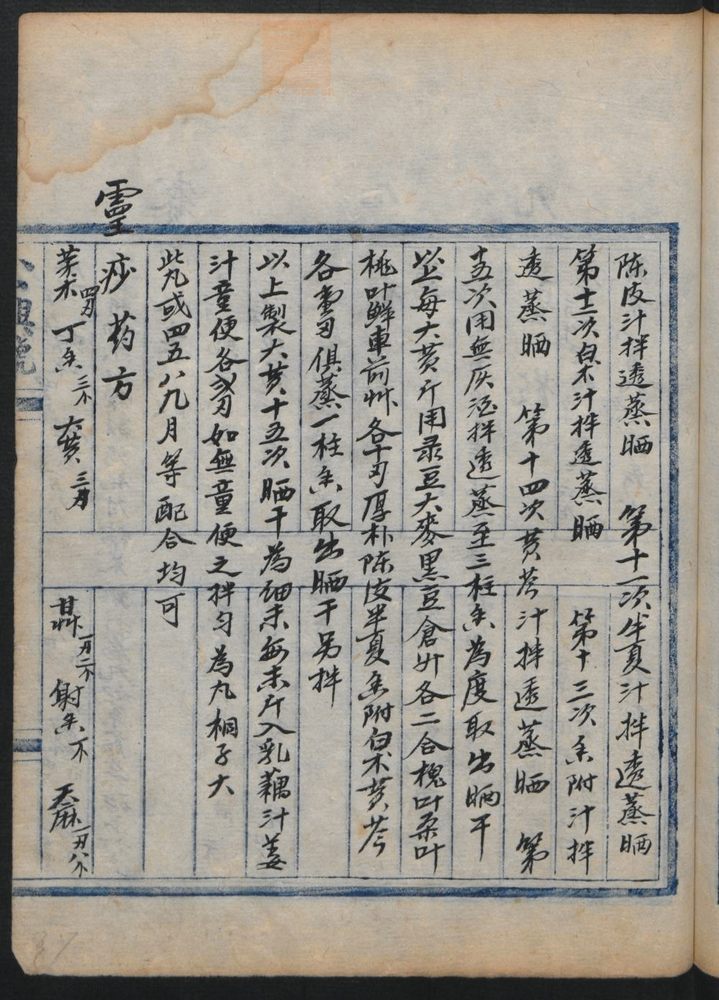 陈皮汁拌透蒸晒 第十一次半夏汁拌透蒸晒
第十二次白术汁拌透蒸晒 第十三次香附汁拌
透蒸晒 第十四次黄芩汁拌透蒸晒 第
十五次用無灰酒拌透蒸至三柱香為度取出晒干
以上每大黄斤用录豆大麥黑豆倉米各二合槐叶桑叶
桃叶鲜車前艸各十刃厚朴陈皮半夏香附白术黄芩
各壹刃俱蒸一柱香取出晒干另拌
以上製大黄十五次晒干為细末每末斤入乳藕汁姜
汁童便各弍刃如無童便之拌匀為丸桐子大
此丸或四五八九月等配合均可
靈
痧药方
茅术四刃 丁香三 大黄三刃
甘艸 射香 天麻一刃八